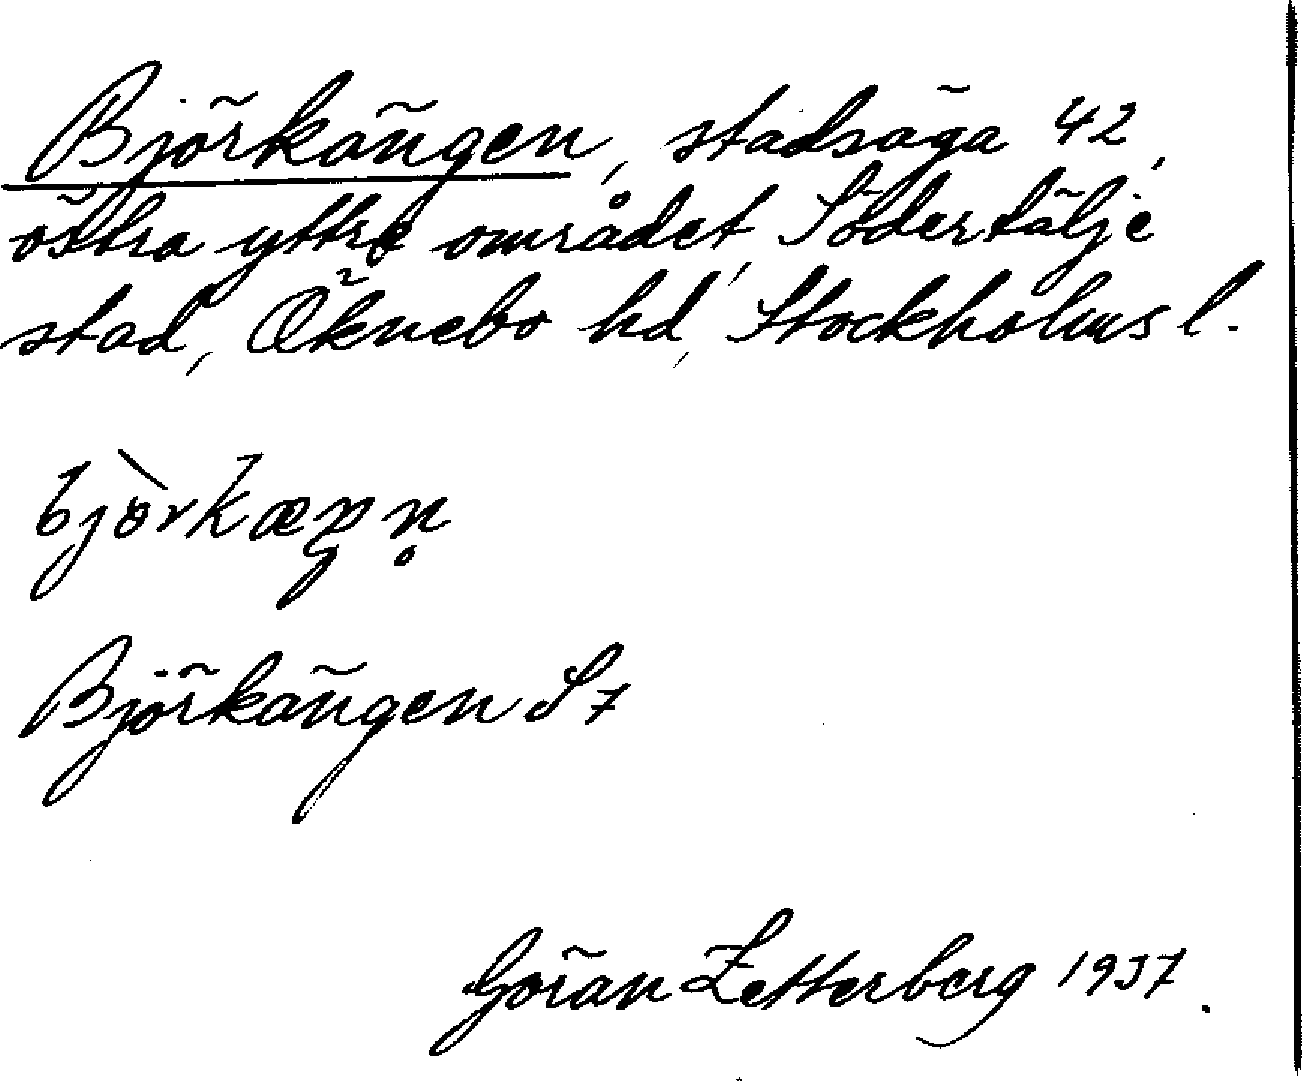 Björkängen, stadsäga 42,
östra yttre området, Södertälje
stad, Öknebo hd, Stockholms l.
bjòrkæŋn̥
Björkängen S7
Göran Zetterberg 1937.